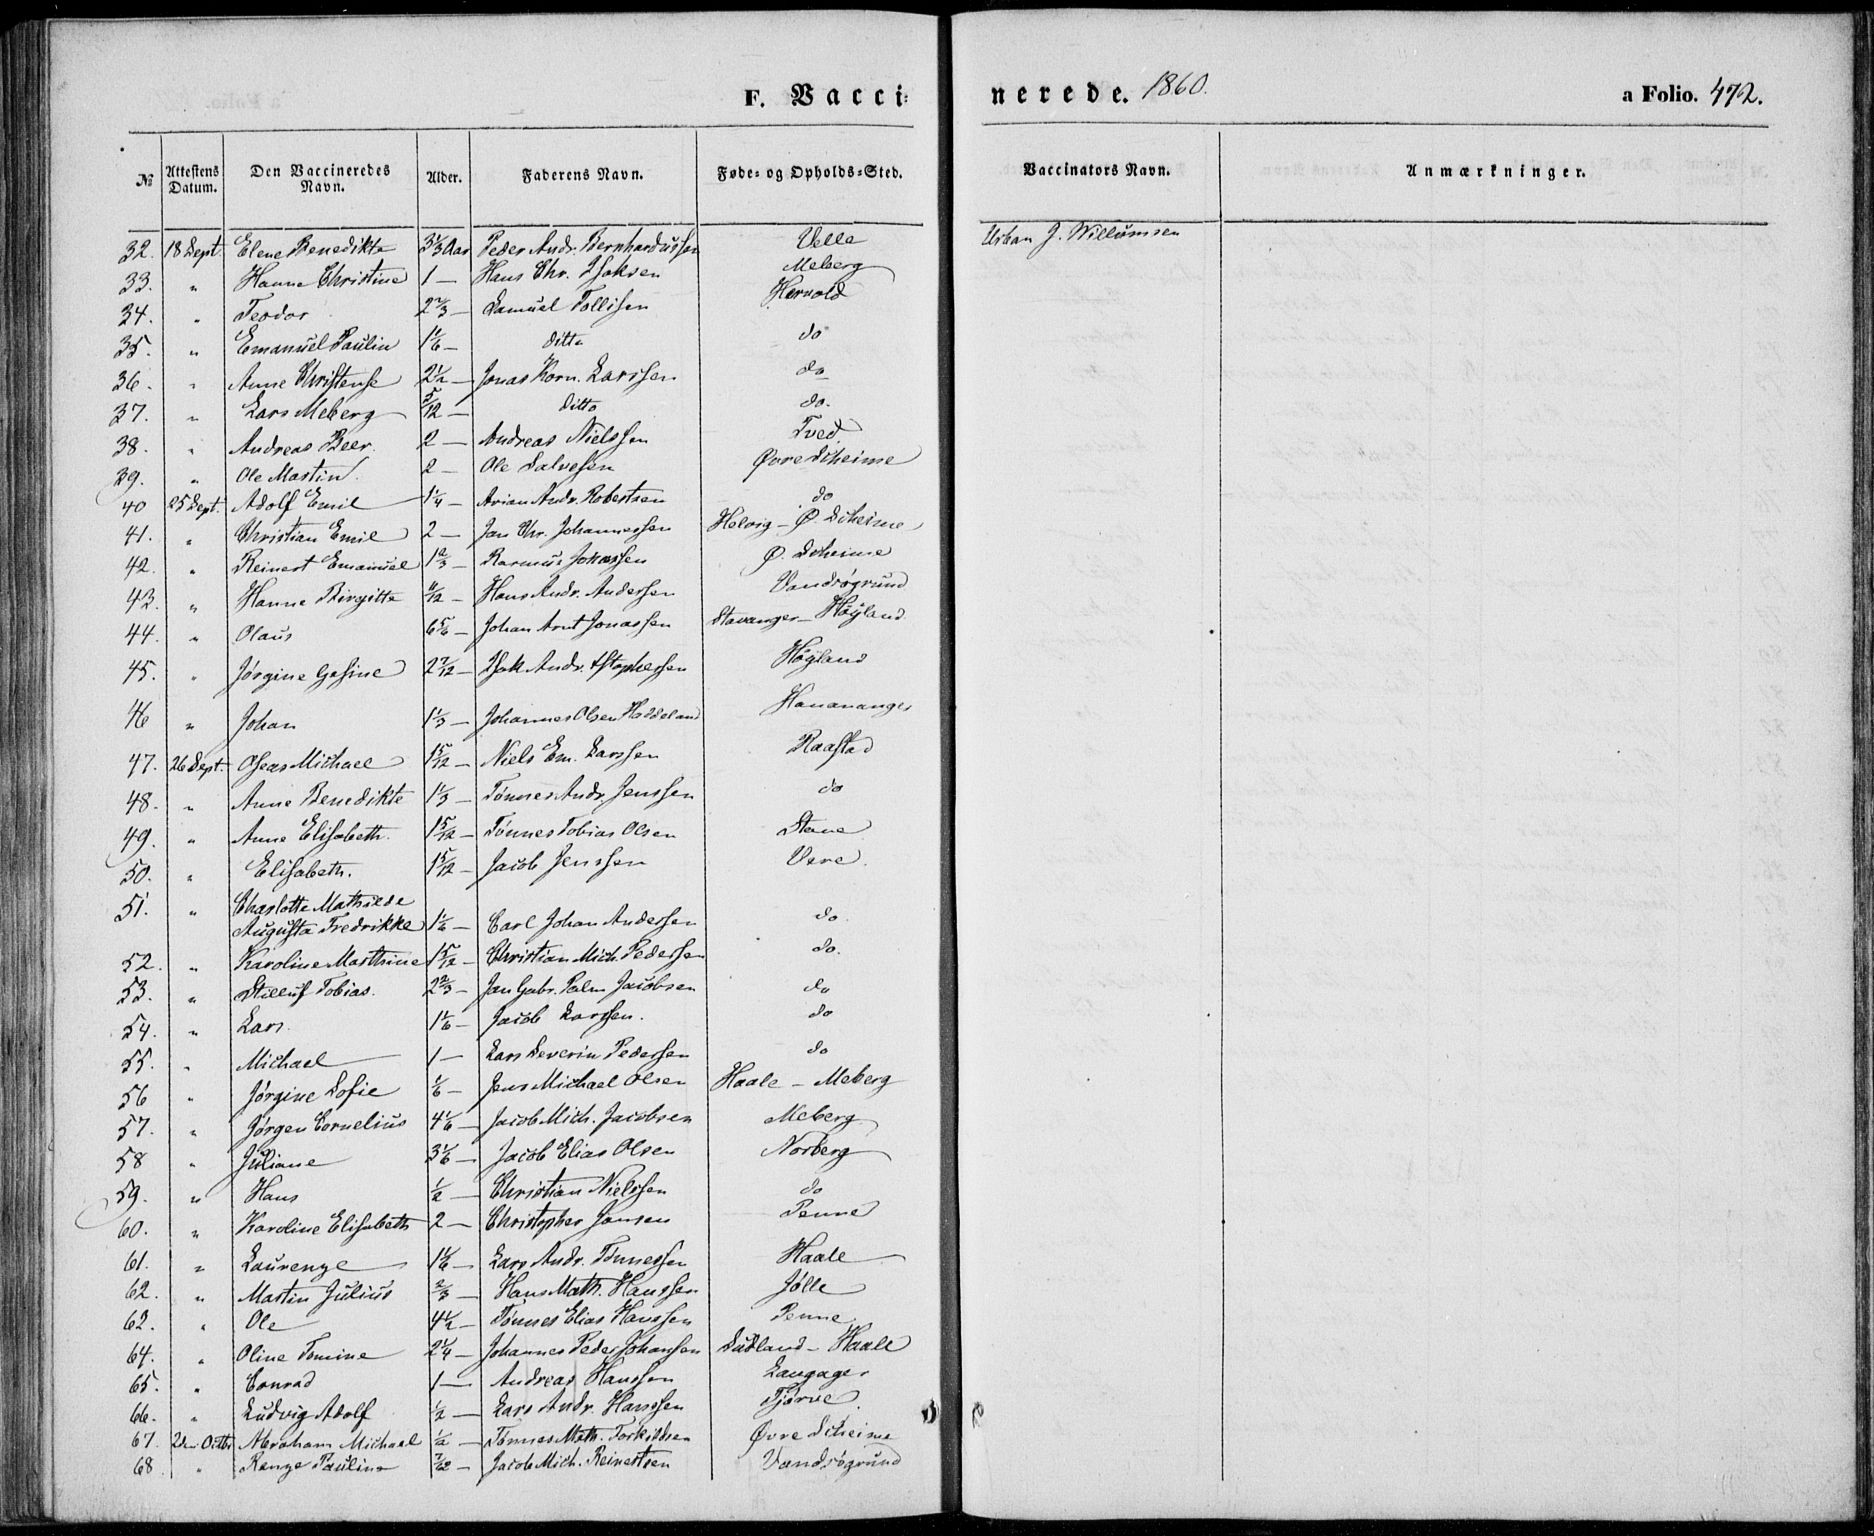 F. Vacci= nerede. 1860. a Folio. 472.
№ Attestens Datum. Den Vaccineredes Navn. Alder. Faderens Navn. Føde= og Opholds=Sted. Vaccinators Navn. Anmærkninger.
32. 18 Sept. Elene Benedikte 3⅓ Aar Peder Andr. Bernhardussen Velle Urban J. Willumsen
33. " Hanne Christine 1 — Hans Chr. Isaksen Meberg
34. " Teodor 2⅔ — Samuel Tollisen Hervold
35. " Emanuel Paulin 1⅙ — ditto do
36. " Anne Christense 2½ — Jonas Korn. Larssen do
37. " Lars Meberg 5/12 — ditto do.
38. " Andreas Beer. 2 — Andreas Nielssen Tved
39. " Ole Martin. 2 — Ole Salvesen Øvre Scheime
40 25 Sept. Adolf Emil 1¼ — Arian Andr. Robertsen do
41. " Christian Emil 2 — Jan Chr. Johannessen Helvig — Ø. Scheime
42. " Reinert Emanuel 1⅔ — Rasmus Jonassen Ø. Scheime
43. " Hanne Birgitte 11/12 — Hans Andr. Anderssen Vandsøgrund
44. " Olaus 6⅚ — Johan Arnt Jonassen Stavanger — Høyland
45. " Jørgine Gesine 2 7/12 — Isak Andr. Stophersen Høyland
46 " Johan 1⅓ — Johannes Olsen Haddeland Hanananger
47. 26 Sept. Oseas Michael 1 5/12 — Niels Em. Larssen Raastad
48. " Anne Benedikte 1⅓ — Tønnes Andr. Jenssen do
49. " Anne Elisabeth. 1 5/12 — Tønnes Tobias Olsen Stene
50. " Elisabeth. 1 5/12 — Jacob Jenssen Vere.
51. " Charlotte Mathilde
Augusta Fredrikke 1⅙ — Carl Johan Anderssen do.
52. " Karoline Marthine 1 5/12 — Christian Mich. Pederssen do.
53. " Stilluf Tobias. 2⅔ — Jan Gabr. Palm Jacobsen do
54. " Lars. 1⅙ — Jacob Larssen. do
55. " Michael 1 — Lars Severin Pedersen do
56 " Jørgine Sofie ⅙ — Jens Michael Olsen Haale — Meberg
57. " Jørgen Cornelius 4⅙ — Jacob Mich. Jacobsen Meberg
58 " Juliane 3⅙ — Jacob Elias Olsen Norberg
59. " Hans ½ — Christian Nielssen do
60. " Karoline Elisabeth 2 — Christopher Jansen Penne
61. " Laurenze 1⅙ — Lars Andr. Tønnessen Haale
62. " Martin Julius ⅔ — Hans Math. Hanssen Jølle
62. " Ole 4½ — Tønnes Elias Hanssen Penne
64. " Oline Tomine 2¼ — Johannes Peder Johansen Sudland — Haale
65. " Conrad 1 — Andreas Hanssen Langager
66. " Ludvig Adolf ½ — Lars Andr. Hanssen Tjørve.
67. 2den Octbr Abraham Michael ½ — Tønnes Math. Torkildsen Øvre Scheime
68 " Range Pauline 7/12 — Jacob Mich. Reinertsen Vandsøgrund